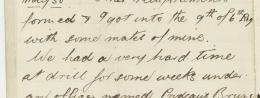 formed & I got into the 9th of 6th Reg
with some mates of mine.
We had a very hard time
at drill for some weeks under
an officer named